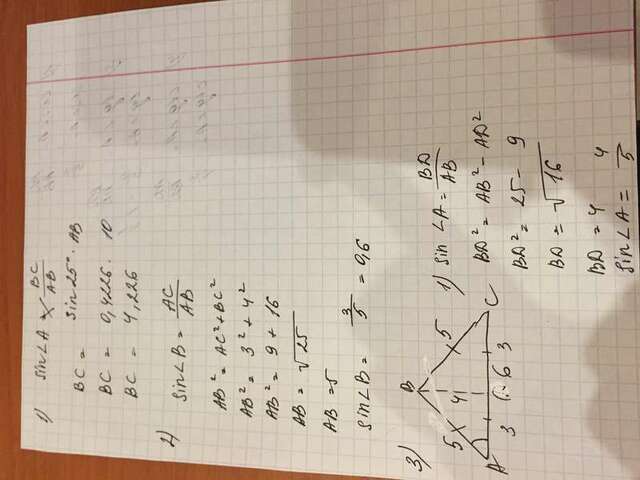 1) sin∠A = BC/AB
BC = sin25°·AB
BC = 0,4226·10
BC = 4,226
2) sin∠B = AC/AB
AB² = AC²+BC²
AB² = 3²+4²
AB² = 9+16
AB = √25
AB = 5
sin∠B = 3/5 = 0,6
3)
B
5 4 5
A 3 6 3 C
1) sin∠A = BD/AB
BD² = AB² - AD²
BD² = 25 - 9
BD = √16
BD = 4
sin∠A = 4/5